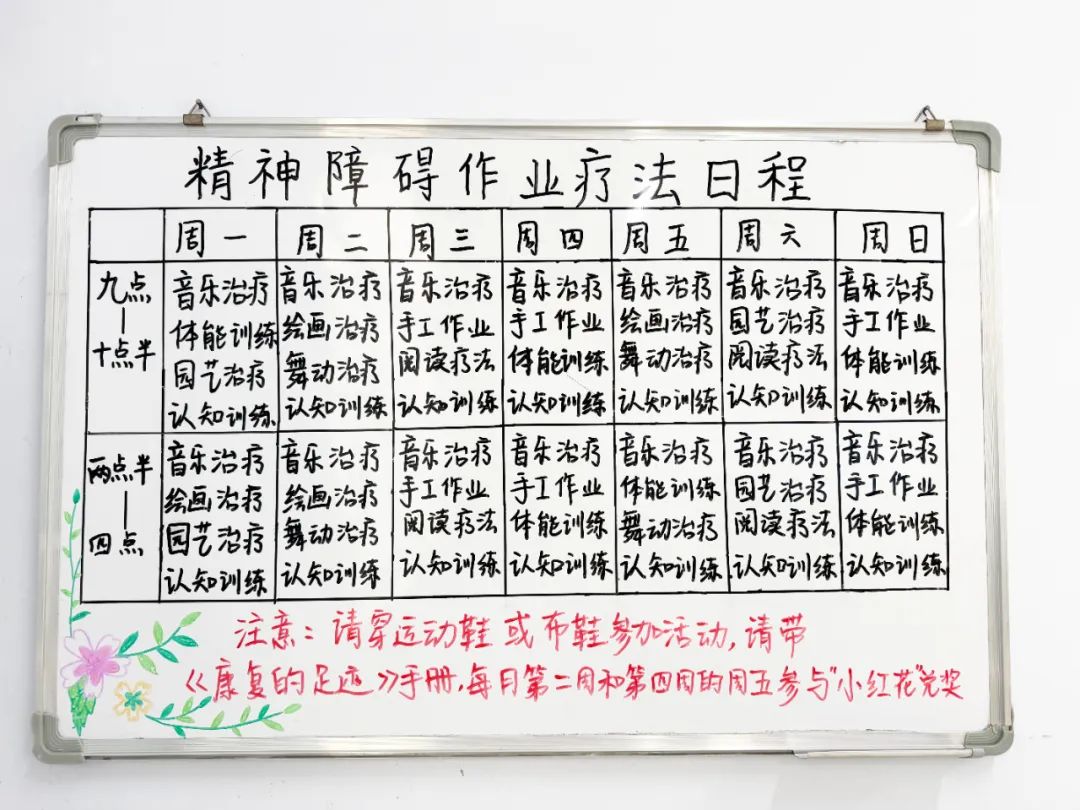 精神障碍作业疗法日程
周一 周二 周三 周四 周五 周六 周日
九点 音乐治疗 音乐治疗 音乐治疗 音乐治疗 音乐治疗 音乐治疗 音乐治疗
| 体能训练 绘画治疗 手工作业 手工作业 绘画治疗 园艺治疗 手工作业
十点半 园艺治疗 舞动治疗 阅读疗法 体能训练 舞动治疗 阅读疗法 体能训练
认知训练 认知训练 认知训练 认知训练 认知训练 认知训练 认知训练
两点半 音乐治疗 音乐治疗 音乐治疗 音乐治疗 音乐治疗 音乐治疗 音乐治疗
| 绘画治疗 绘画治疗 手工作业 手工作业 体能训练 园艺治疗 手工作业
四点 园艺治疗 舞动治疗 阅读疗法 体能训练 舞动治疗 阅读疗法 体能训练
认知训练 认知训练 认知训练 认知训练 认知训练 认知训练 认知训练
注意：请穿运动鞋或布鞋参加活动，请带
《康复的足迹》手册，每月第二周和第四周的周五参与“小红花”兑奖